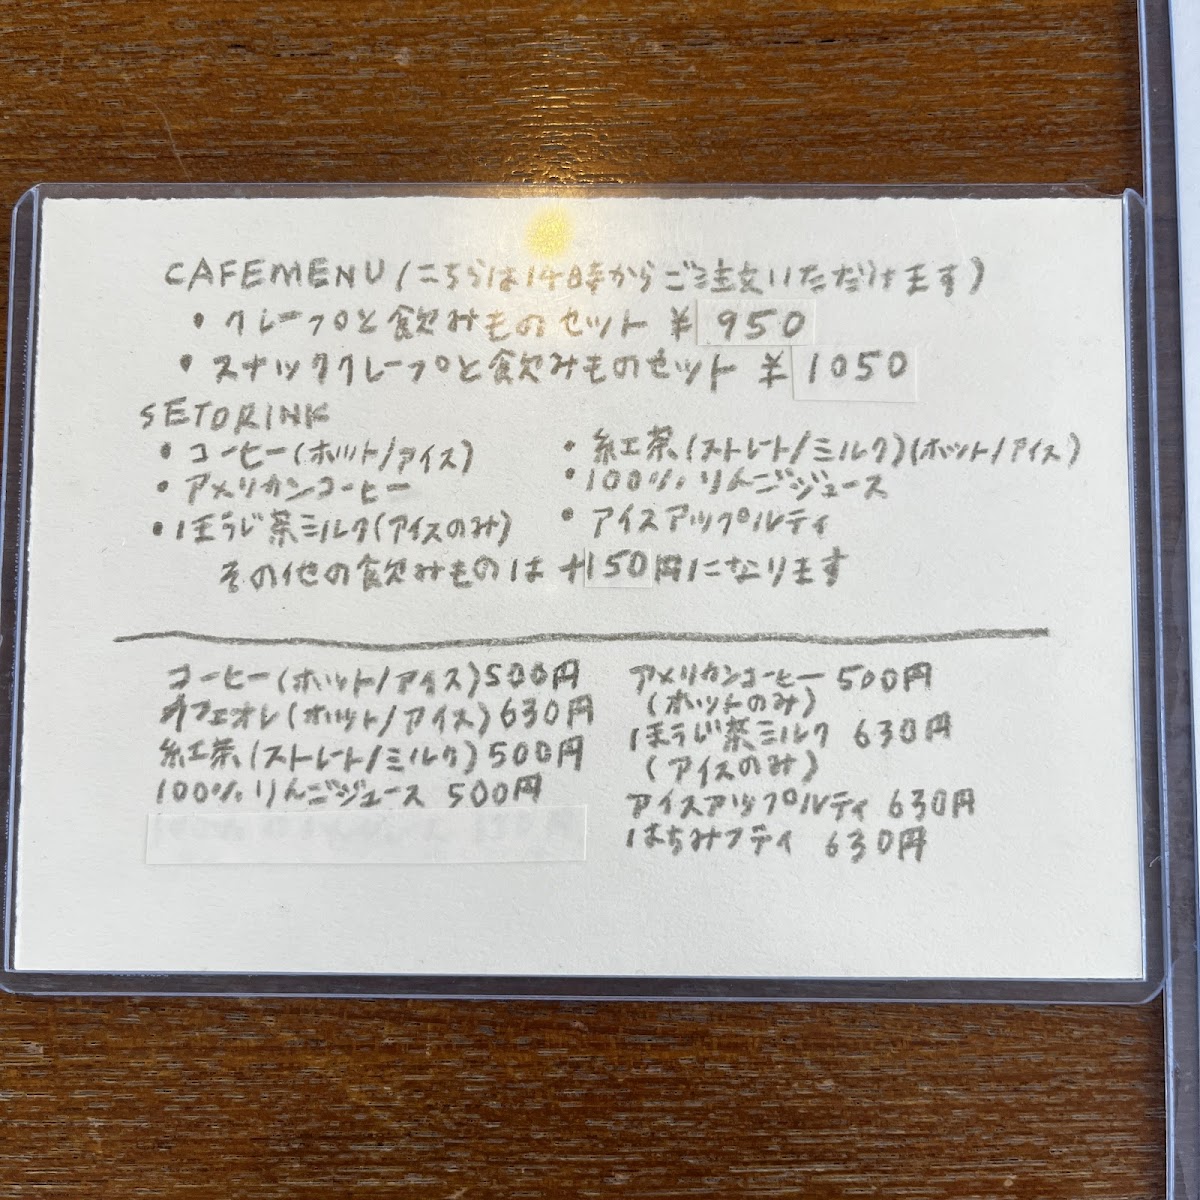 CAFEMENU(こちらは14時からご注文いただけます)
・クレープと飲みものセット ¥950
・スナッククレープと飲みものセット ¥1050
SETDRINK
・コーヒー(ホット/アイス)
・アメリカンコーヒー
・ほうじ茶ミルク(アイスのみ)
・紅茶(ストレート/ミルク)(ホット/アイス)
・100%りんごジュース
・アイスアップルティ
その他の飲みものは+150円になります
コーヒー(ホット/アイス)500円
カフェオレ(ホット/アイス)630円
紅茶(ストレート/ミルク)500円
100%りんごジュース 500円
アメリカンコーヒー 500円
(ホットのみ)
ほうじ茶ミルク 630円
(アイスのみ)
アイスアップルティ 630円
はちみつティ 630円